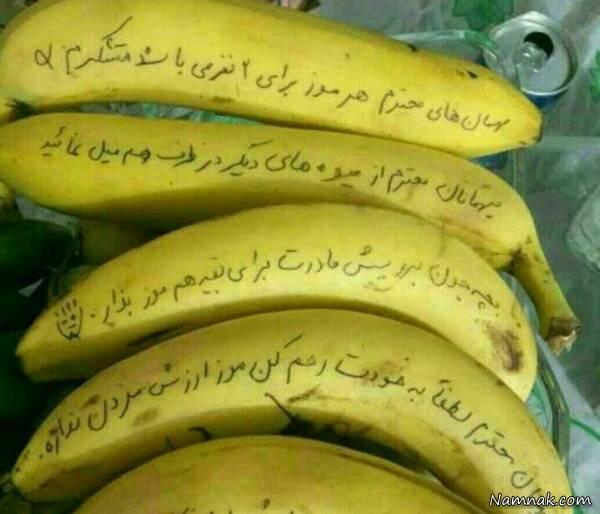 مهمان های محترم هر موز برای ۲ نفر می باشد متشکرم
میهمانان محترم از میوه های دیگر در ظرف هم میل نمائید
بچه جون برو پیش مادرت برای بقیه هم موز بذار.
محترم لطفاً به خودت رحم کن موز ارزش مردن نداره.
Namnak.com